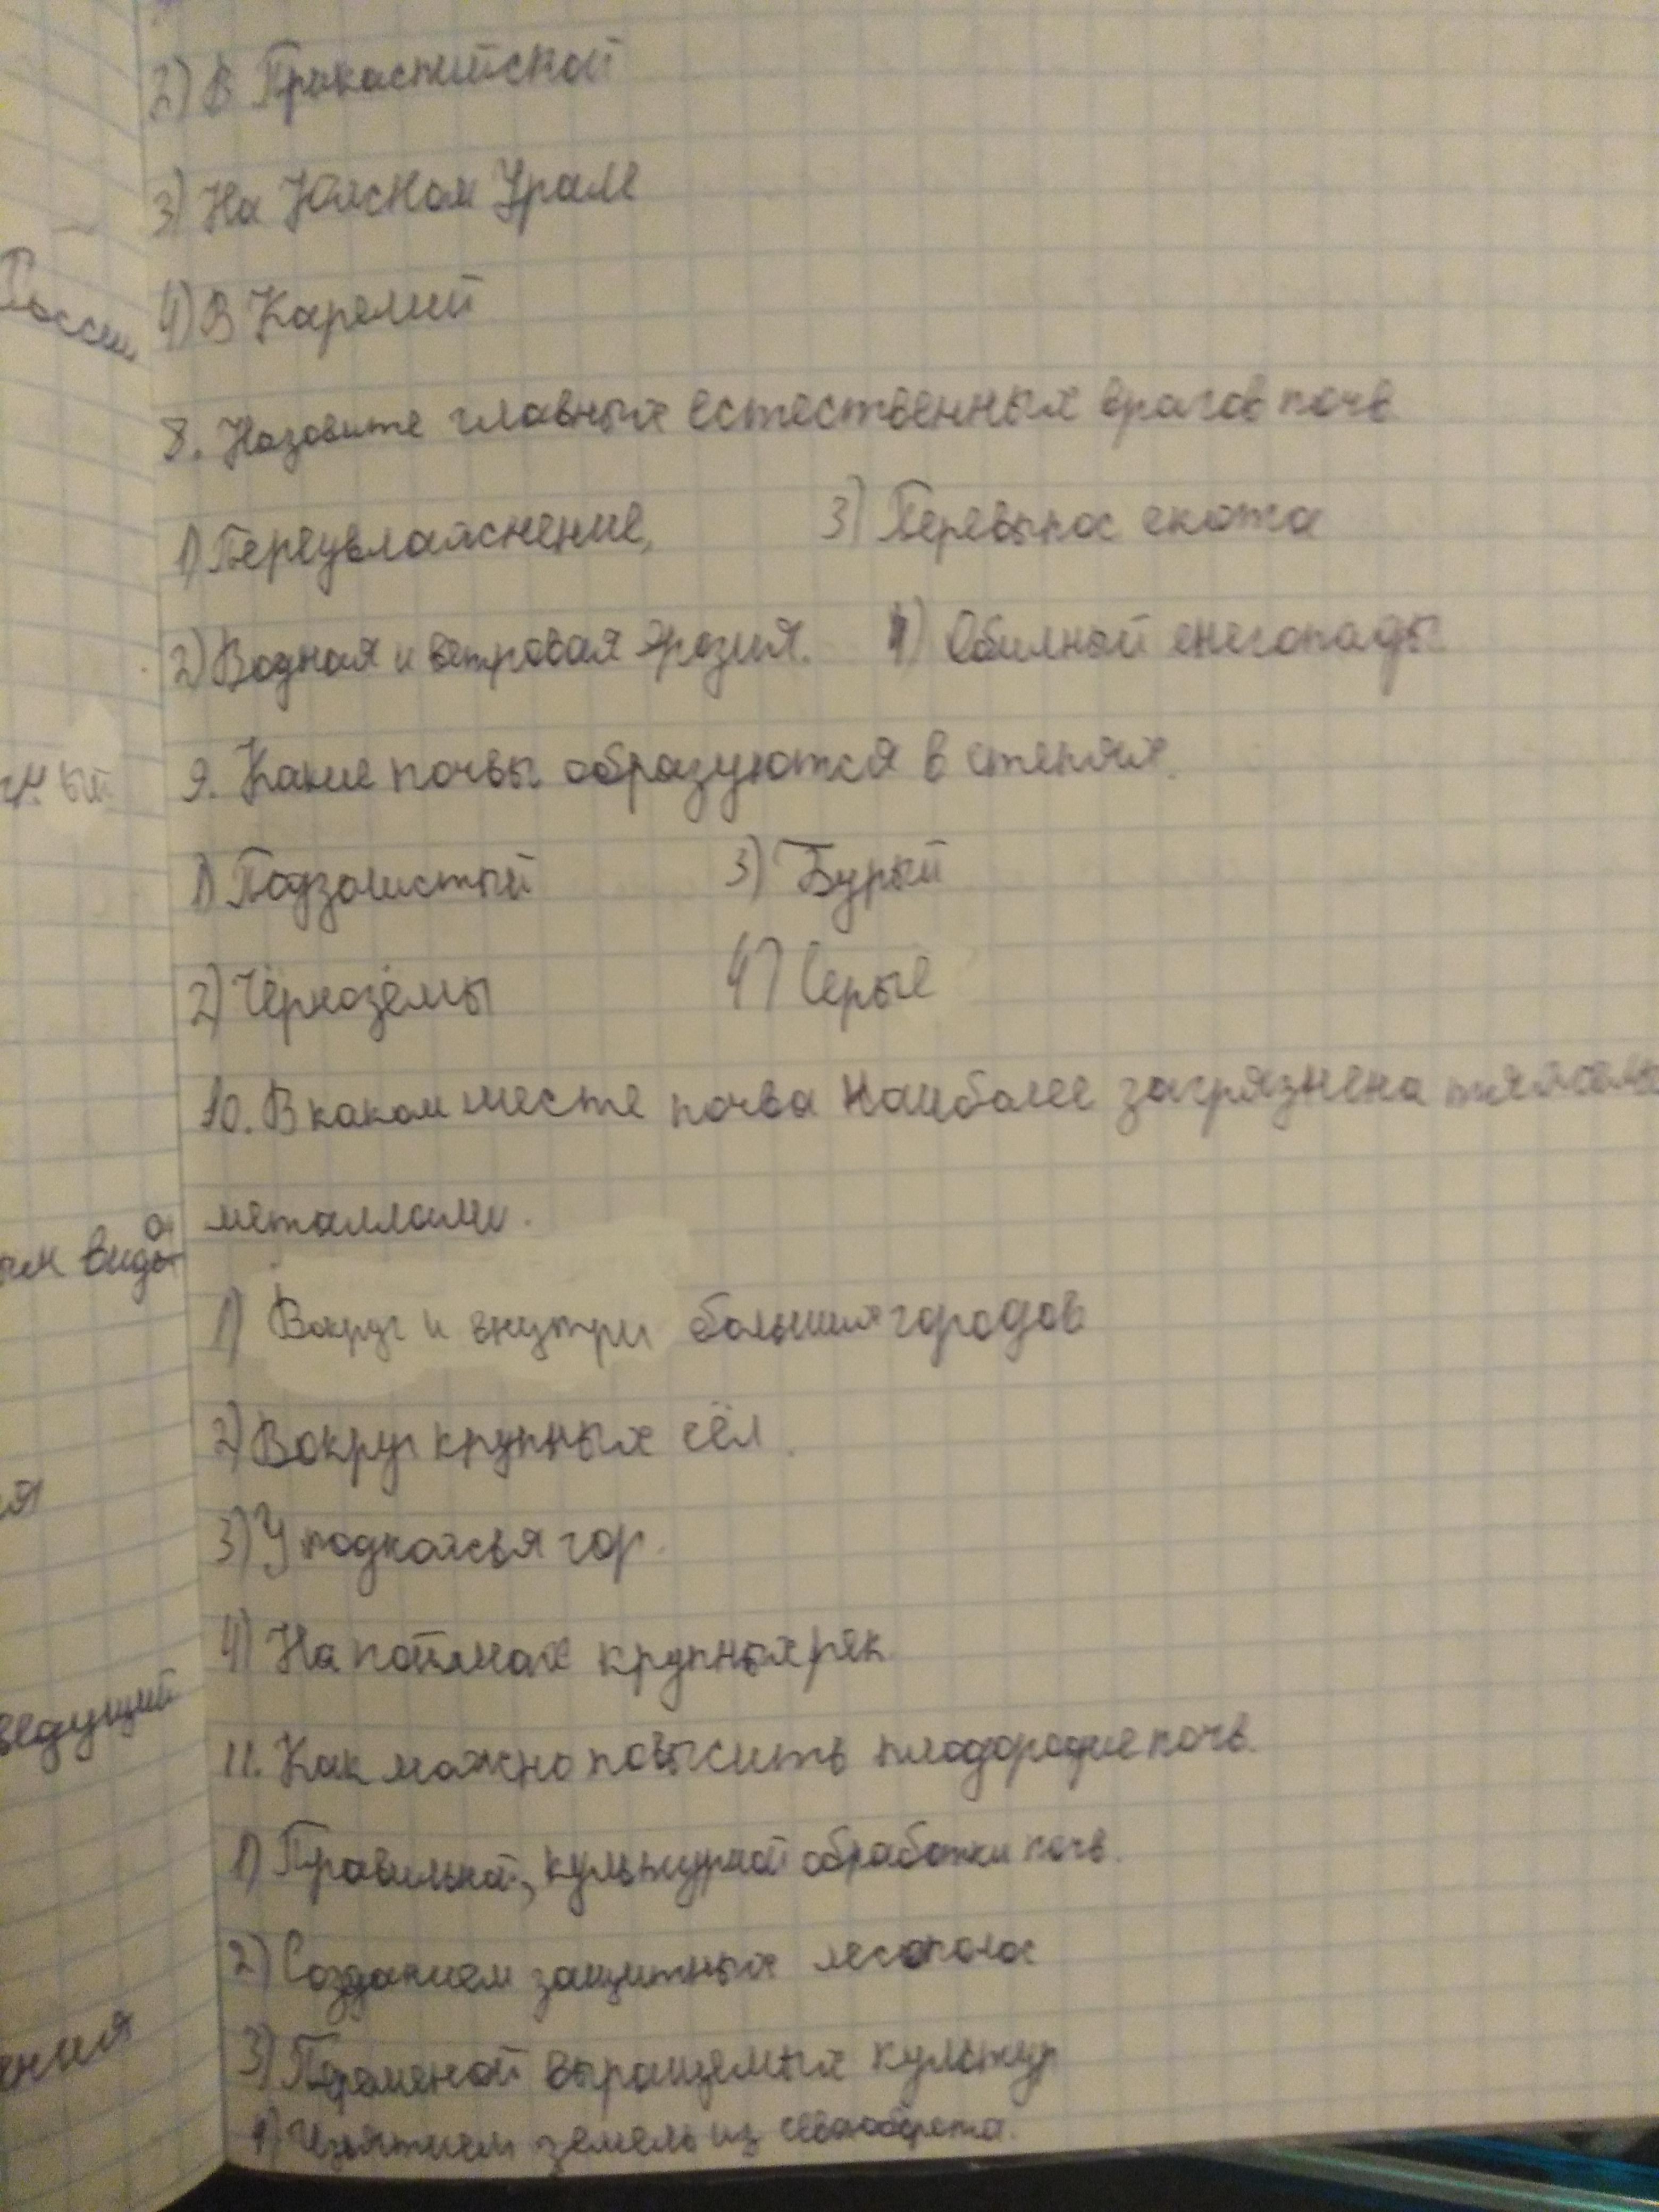 2) В Прикаспийской
3) На Южном Урале
4) В Карелий
России
8. Назовите главных естественных врагов почв
1) Переувлажнение, 3) Перевыпас скота
2) Водная и ветровая эрозия. 4) Обилный снегопады
9. Какие почвы образуются в степях.
ый
1) Подзолистый 3) Бурый
2) Чернозёмы 4) Серые
10. В каком месте почва наиболее загрязнена
металлами.
вида
1) Вокруг и внутри больших городов
2) Вокруг крупных сёл.
3) У подножья гор.
4) На поймах крупных рек
ведущий
11. Как можно повысить плодородие почв.
1) Правильной, культурной обработки почв.
2) Созданием защитных лесополос
3) Переменой выращемых культур
ния
4) Изъятием земель из севооборота.